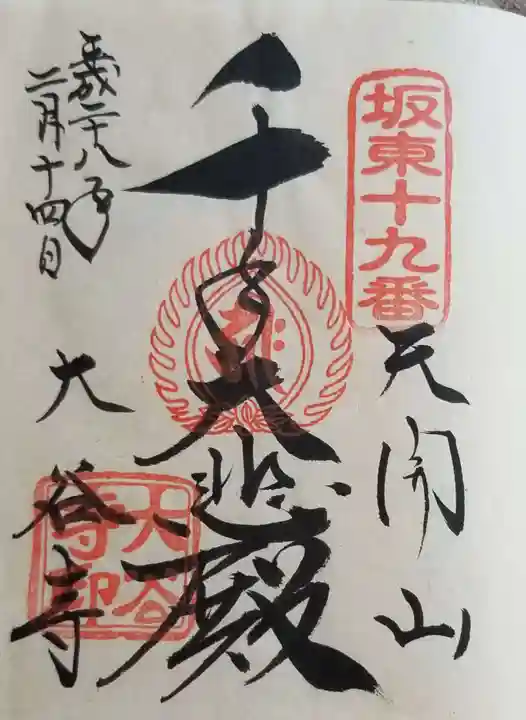 坂東十九番
天開山
千手大悲殿
大谷寺印
平成二十八年
二月十四日
大谷寺